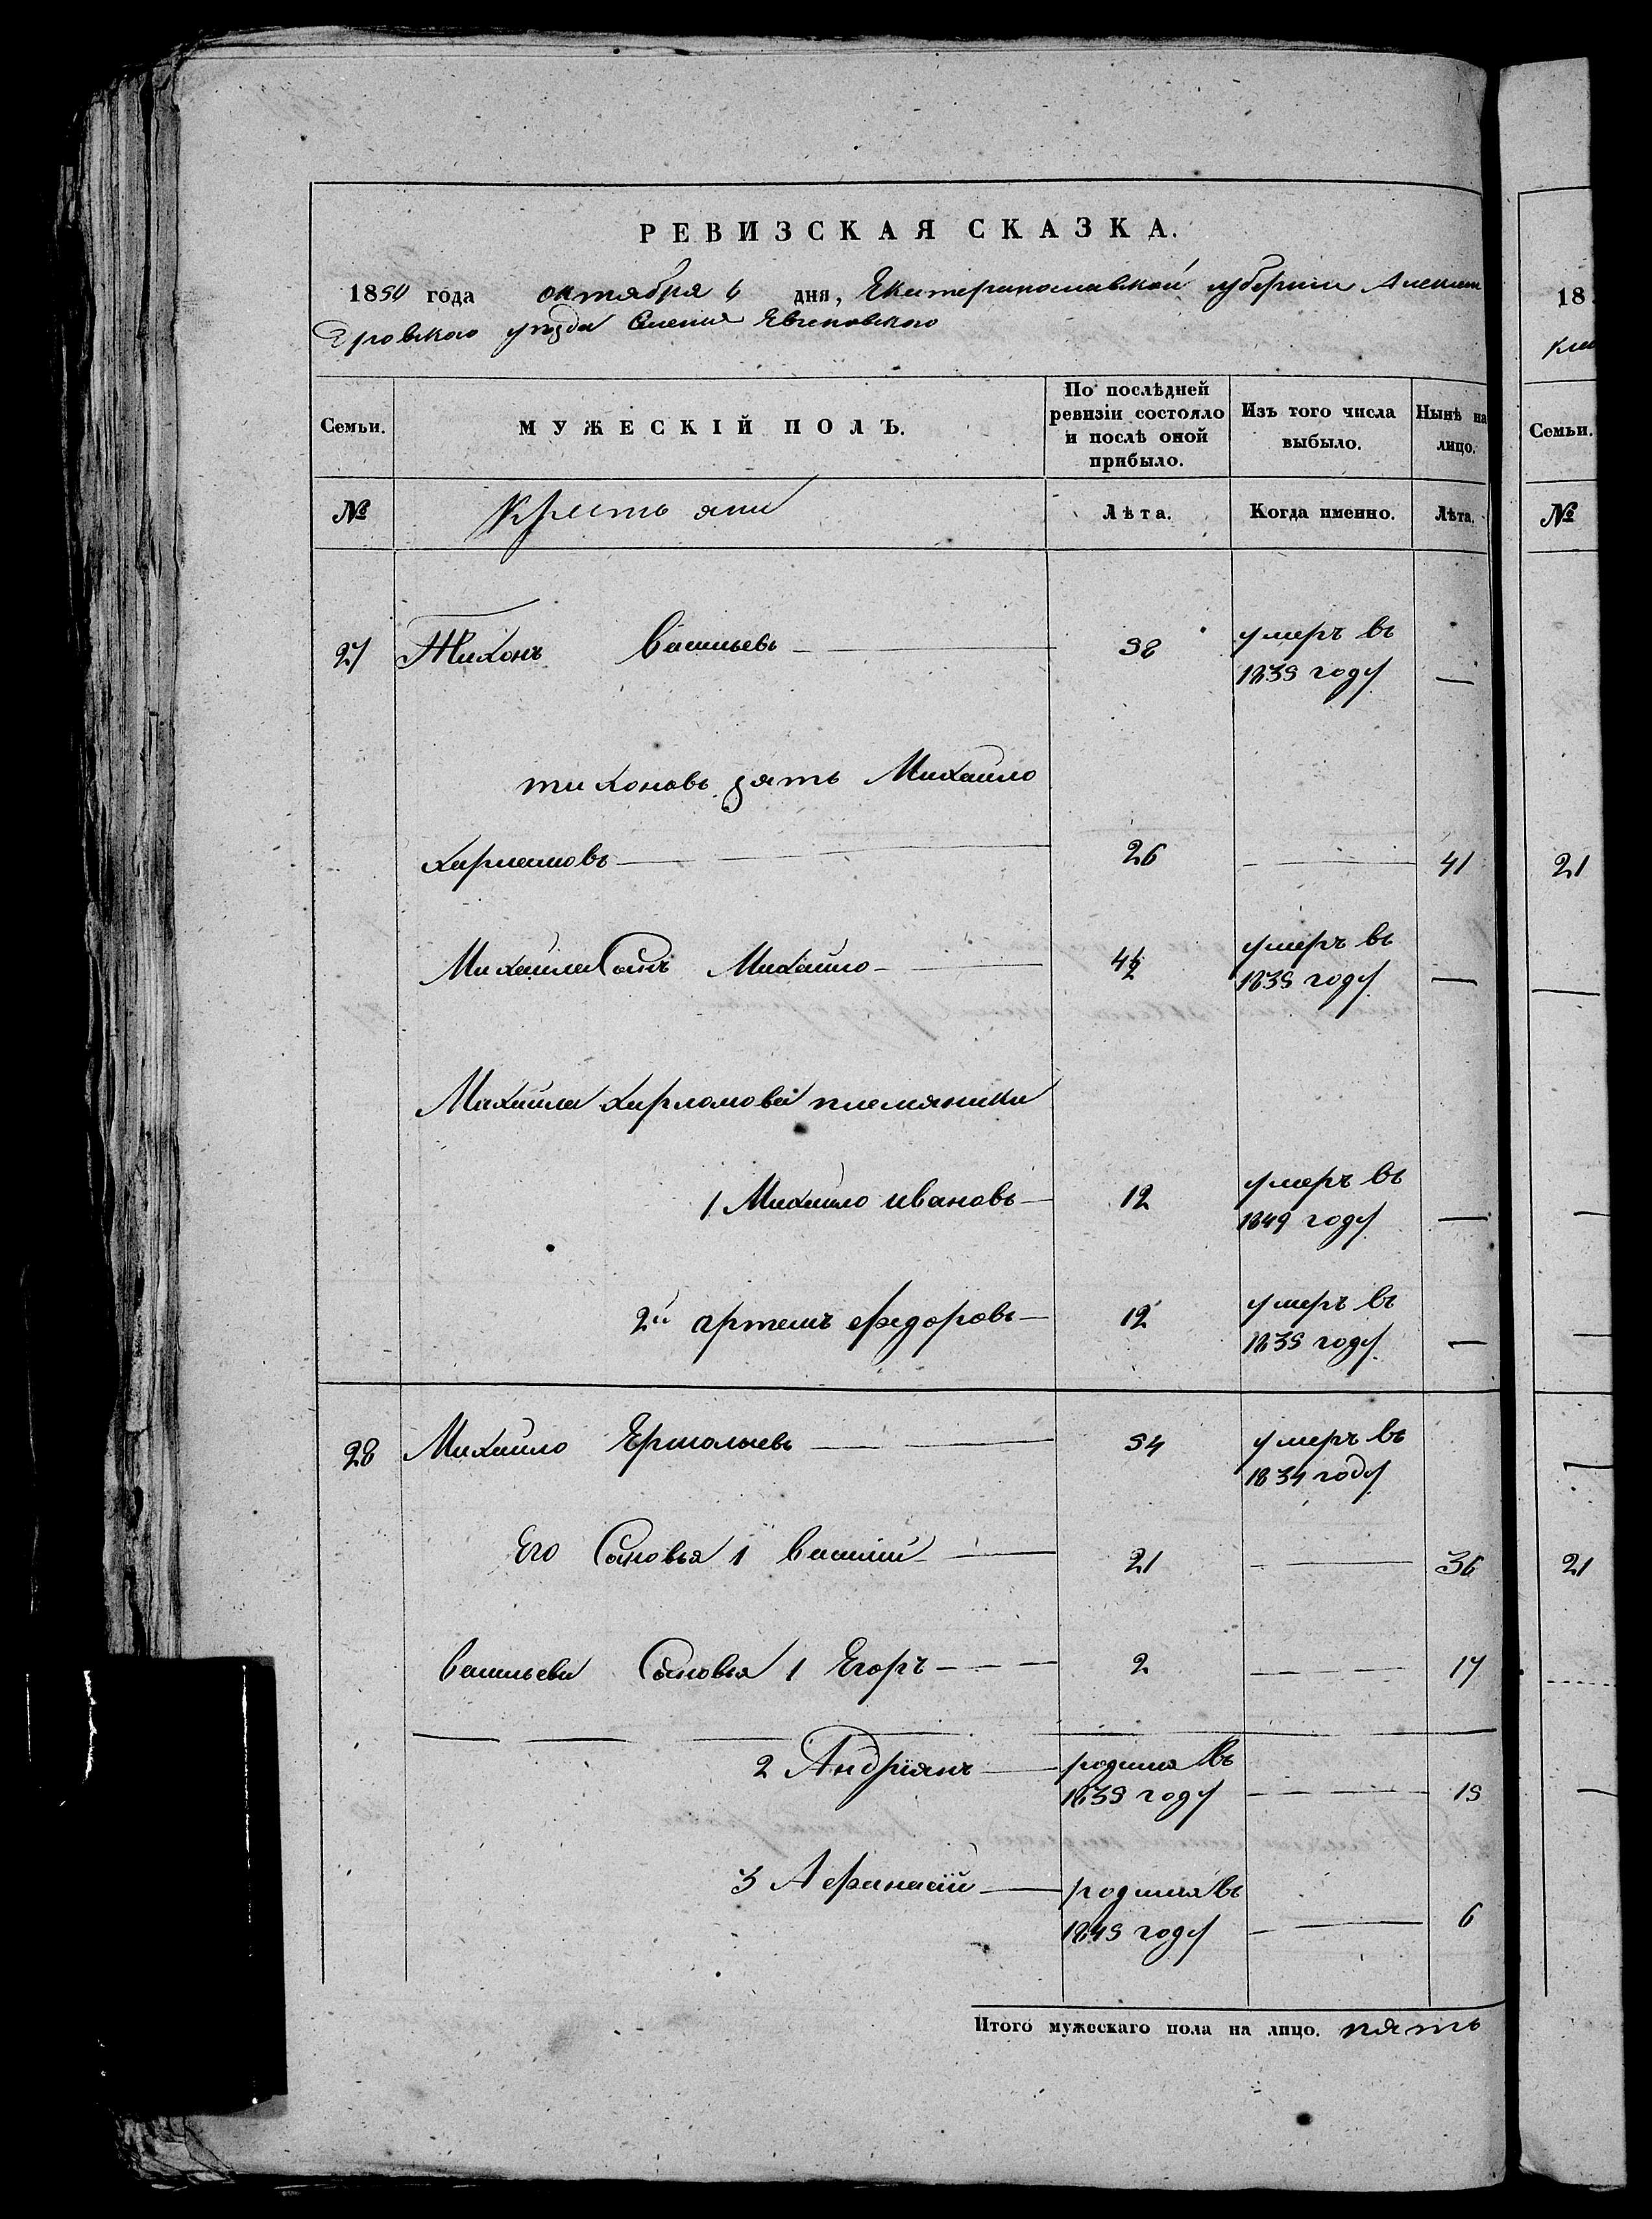 РЕВИЗСКАЯ СКАЗКА.
1850 года октября 6 дня, Екатеринославской губерніи Александ
ровского уезда
Семьи.
МУЖЕСКІЙ ПОЛЪ.
По послѣдней ревизіи состояло и послѣ оной прибыло.
Изъ того числа выбыло.
Нынѣ на лицо.
№
Крестьяни
Лѣта.
Когда именно.
Лѣта.
27 Тихонъ Васильевъ 58 умеръ въ
1835 году
тихоновъ зять Михайло
харламовъ 26 41
Михайла Сынъ Михайло умеръ въ
1835 году
Михайла харламова племяники
1 Михайло ивановъ 12 умеръ въ
1849 году
2й артемъ федоровъ 12 умеръ въ
1835 году
28 Михайло Ермолаевъ 54 умеръ въ
1834 году
Его Сыновья 1 василий 21 36
васильевы Сыновья 1 Егоръ 2 17
2 Андріянъ родился въ
1835 году 15
3 Афанасій родился въ
1845 году 6
Итого мужескаго пола на лицо. пять
18
Семьи.
№
21
21